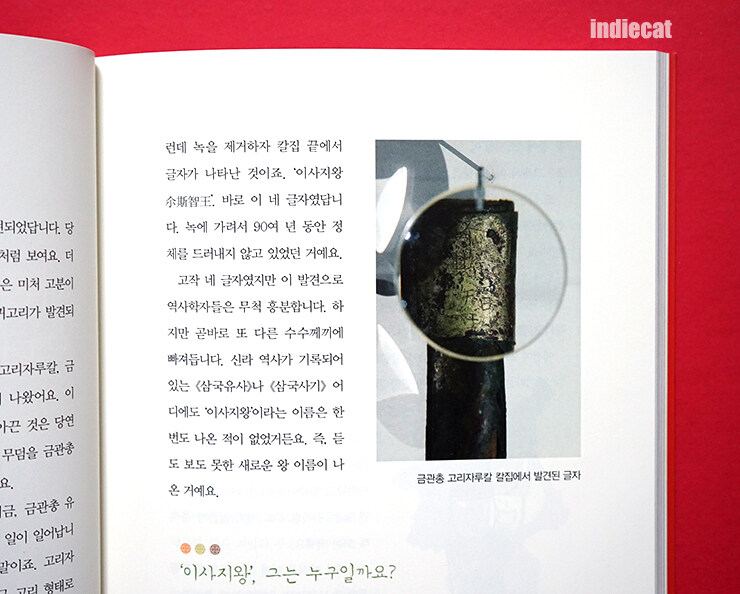 indiecat
견되었답니다. 당
처럼 보여요. 더
은 미처 고분이
귀고리가 발견되
고리자루칼, 금
나왔어요. 이
아낀 것은 당연
무덤을 금관총
요.
금, 금관총 유
일이 일어납니
말이죠. 고리자
고리 형태로
런데 녹을 제거하자 칼집 끝에서
글자가 나타난 것이죠. ‘이사지왕
尒斯智王’. 바로 이 네 글자였답니
다. 녹에 가려서 90여 년 동안 정
체를 드러내지 않고 있었던 거예요.
고작 네 글자였지만 이 발견으로
역사학자들은 무척 흥분합니다. 하
지만 곧바로 또 다른 수수께끼에
빠져듭니다. 신라 역사가 기록되어
있는 《삼국유사》나 《삼국사기》 어
디에도 ‘이사지왕’이라는 이름은 한
번도 나온 적이 없었거든요. 즉, 듣
도 보도 못한 새로운 왕 이름이 나
온 거예요.
금관총 고리자루칼 칼집에서 발견된 글자
‘이사지왕’, 그는 누구일까요?